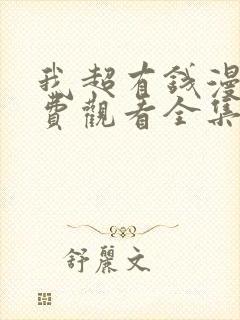 我超有錢漫
費觀看全集
舒麗文